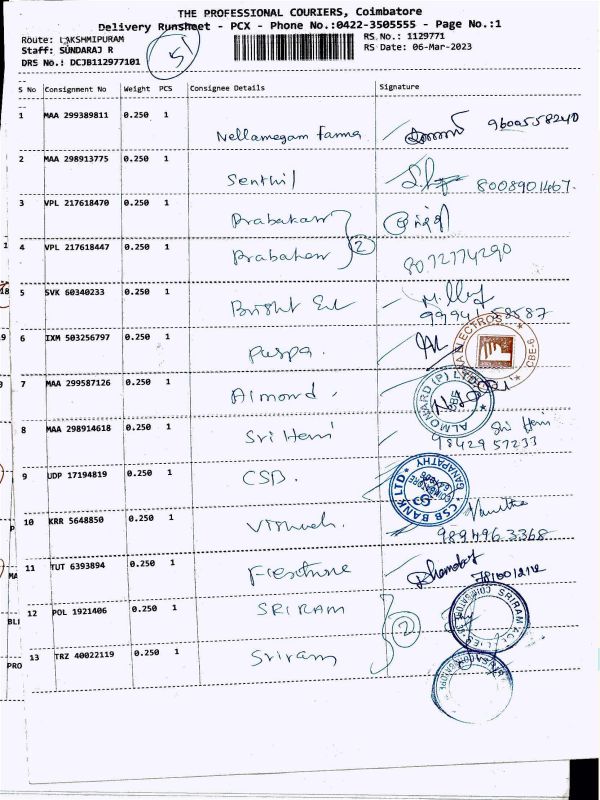 THE PROFESSIONAL COURIERS, Coimbatore
Delivery Runsheet - PCX - Phone No.:0422-3505555 - Page No.:1
Route: LAKSHMIPURAM
Staff: SUNDARAJ R
DRS No.: DCJB112977101
51
RS.No.: 1129771
RS Date: 06-Mar-2023
S No Consignment No Weight PCS Consignee Details Signature
1 MAA 299389811 0.250 1 Nellamegam Farma 9600558240
2 MAA 298913775 0.250 1 Senthil 8008901467.
3 VPL 217618470 0.250 1 Prabakaran
4 VPL 217618447 0.250 1 Prabakaran 2 8072774290
5 SVK 60340233 0.250 1 Bright 99941 58587
6 IXM 503256797 0.250 1 Puspa. ELECTROS CBE-6
7 MAA 299587126 0.250 1 Almond. ALMONARD (P) LTD
8 MAA 298914618 0.250 1 Sri Heni Sri Heni
9842957233
9 UDP 17194819 0.250 1 CSB. CSB BANK LTD GANAPATHY
10 KRR 5648850 0.250 1 Vanitha
9894963368
11 TUT 6393894 0.250 1
12 POL 1921406 0.250 1 SRIRAM 2 SRIRAM
13 TRZ 40022119 0.250 1 Sriram